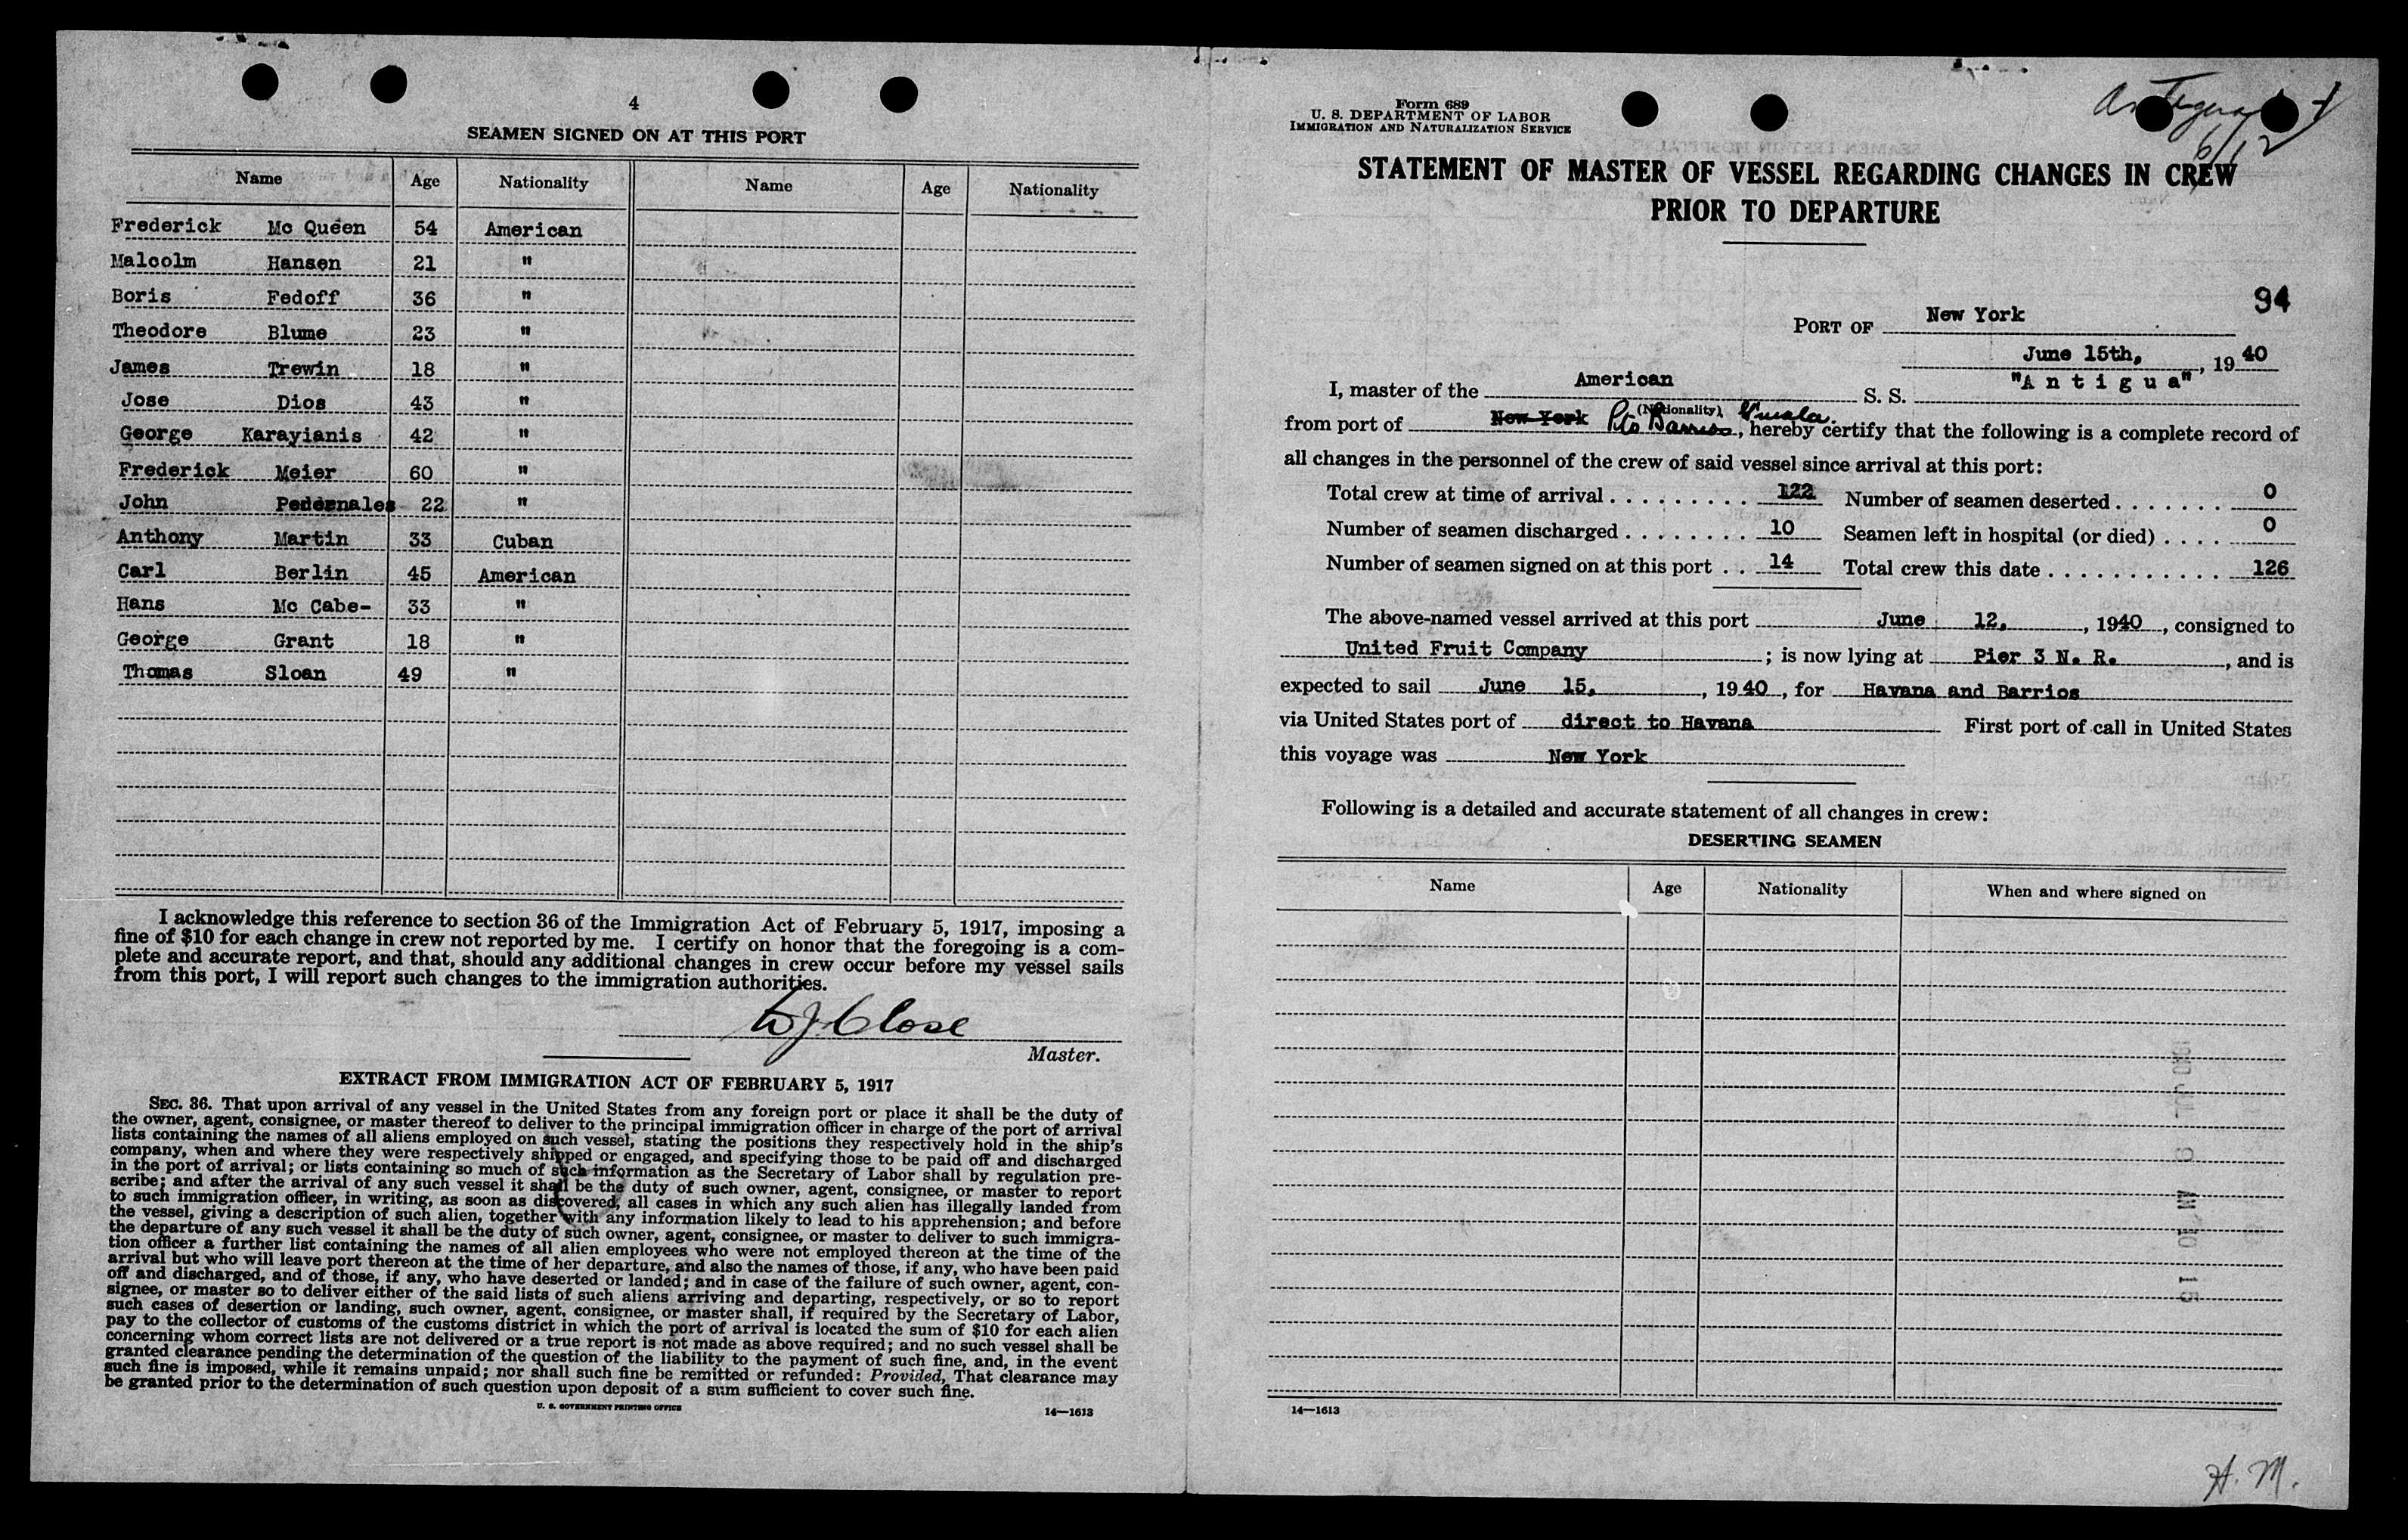 4
SEAMEN SIGNED ON AT THIS PORT
Name Age Nationality Name Age Nationality
Frederick Mc Queen 54 American
Malcolm Hansen 21 "
Boris Fedoff 36 "
Theodore Blume 23 "
James Trewin 18 "
Jose Dios 43 "
George Karayianis 42 "
Frederick Meier 60 "
John Pedernales 22 "
Anthony Martin 33 Cuban
Carl Berlin 45 American
Hans Mc Cabe- 33 "
George Grant 18 "
Thomas Sloan 49 "
I acknowledge this reference to section 36 of the Immigration Act of February 5, 1917, imposing a
fine of $10 for each change in crew not reported by me. I certify on honor that the foregoing is a com-
plete and accurate report, and that, should any additional changes in crew occur before my vessel sails
from this port, I will report such changes to the immigration authorities.
W J Close
Master.
EXTRACT FROM IMMIGRATION ACT OF FEBRUARY 5, 1917
SEC. 36. That upon arrival of any vessel in the United States from any foreign port or place it shall be the duty of
the owner, agent, consignee, or master thereof to deliver to the principal immigration officer in charge of the port of arrival
lists containing the names of all aliens employed on such vessel, stating the positions they respectively hold in the ship's
company, when and where they were respectively shipped or engaged, and specifying those to be paid off and discharged
in the port of arrival; or lists containing so much of such information as the Secretary of Labor shall by regulation pre-
scribe; and after the arrival of any such vessel it shall be the duty of such owner, agent, consignee, or master to report
to such immigration officer, in writing, as soon as discovered, all cases in which any such alien has illegally landed from
the vessel, giving a description of such alien, together with any information likely to lead to his apprehension; and before
the departure of any such vessel it shall be the duty of such owner, agent, consignee, or master to deliver to such immigra-
tion officer a further list containing the names of all alien employees who were not employed thereon at the time of the
arrival but who will leave port thereon at the time of her departure, and also the names of those, if any, who have been paid
off and discharged, and of those, if any, who have deserted or landed; and in case of the failure of such owner, agent, con-
signee, or master so to deliver either of the said lists of such aliens arriving and departing, respectively, or so to report
such cases of desertion or landing, such owner, agent, consignee, or master shall, if required by the Secretary of Labor,
pay to the collector of customs of the customs district in which the port of arrival is located the sum of $10 for each alien
concerning whom correct lists are not delivered or a true report is not made as above required; and no such vessel shall be
granted clearance pending the determination of the question of the liability to the payment of such fine, and, in the event
such fine is imposed, while it remains unpaid; nor shall such fine be remitted or refunded: Provided, That clearance may
be granted prior to the determination of such question upon deposit of a sum sufficient to cover such fine.
U. S. GOVERNMENT PRINTING OFFICE 14—1613
Form 689
U. S. DEPARTMENT OF LABOR
IMMIGRATION AND NATURALIZATION SERVICE
6/12
STATEMENT OF MASTER OF VESSEL REGARDING CHANGES IN CREW
PRIOR TO DEPARTURE
94
PORT OF New York
June 15th, , 19 40
I, master of the American S. S. "A n t i g u a"
(Nationality)
from port of New York Pto Barrios , hereby certify that the following is a complete record of
all changes in the personnel of the crew of said vessel since arrival at this port:
Total crew at time of arrival . . . . . . . . . 122 Number of seamen deserted . . . . . . . 0
Number of seamen discharged . . . . . . . . 10 Seamen left in hospital (or died) . . . . 0
Number of seamen signed on at this port . . 14 Total crew this date . . . . . . . . . . . . 126
The above-named vessel arrived at this port June 12, , 1940 , consigned to
United Fruit Company ; is now lying at Pier 3 N. R. , and is
expected to sail June 15, , 1940 , for Havana and Barrios
via United States port of direct to Havana First port of call in United States
this voyage was New York
Following is a detailed and accurate statement of all changes in crew:
DESERTING SEAMEN
Name Age Nationality When and where signed on
14—1613
H. M.